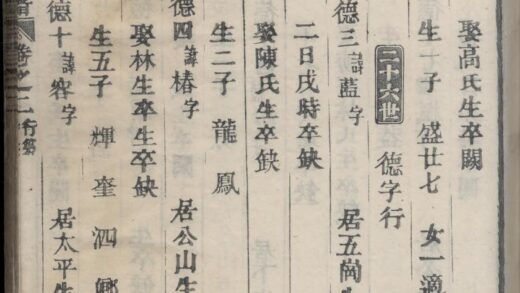 娶高氏生卒闕
生一子 盛廿七 女一適
二十六世 德字行
德三諱藍字 居五崗生
二日戌時卒缺
娶陳氏生卒缺
生二子 龍 鳳
德四諱椿字 居公山生
娶林生卒生卒缺
生五子 輝 奎 泗
德十諱容字 居太平生
卷之二 行第